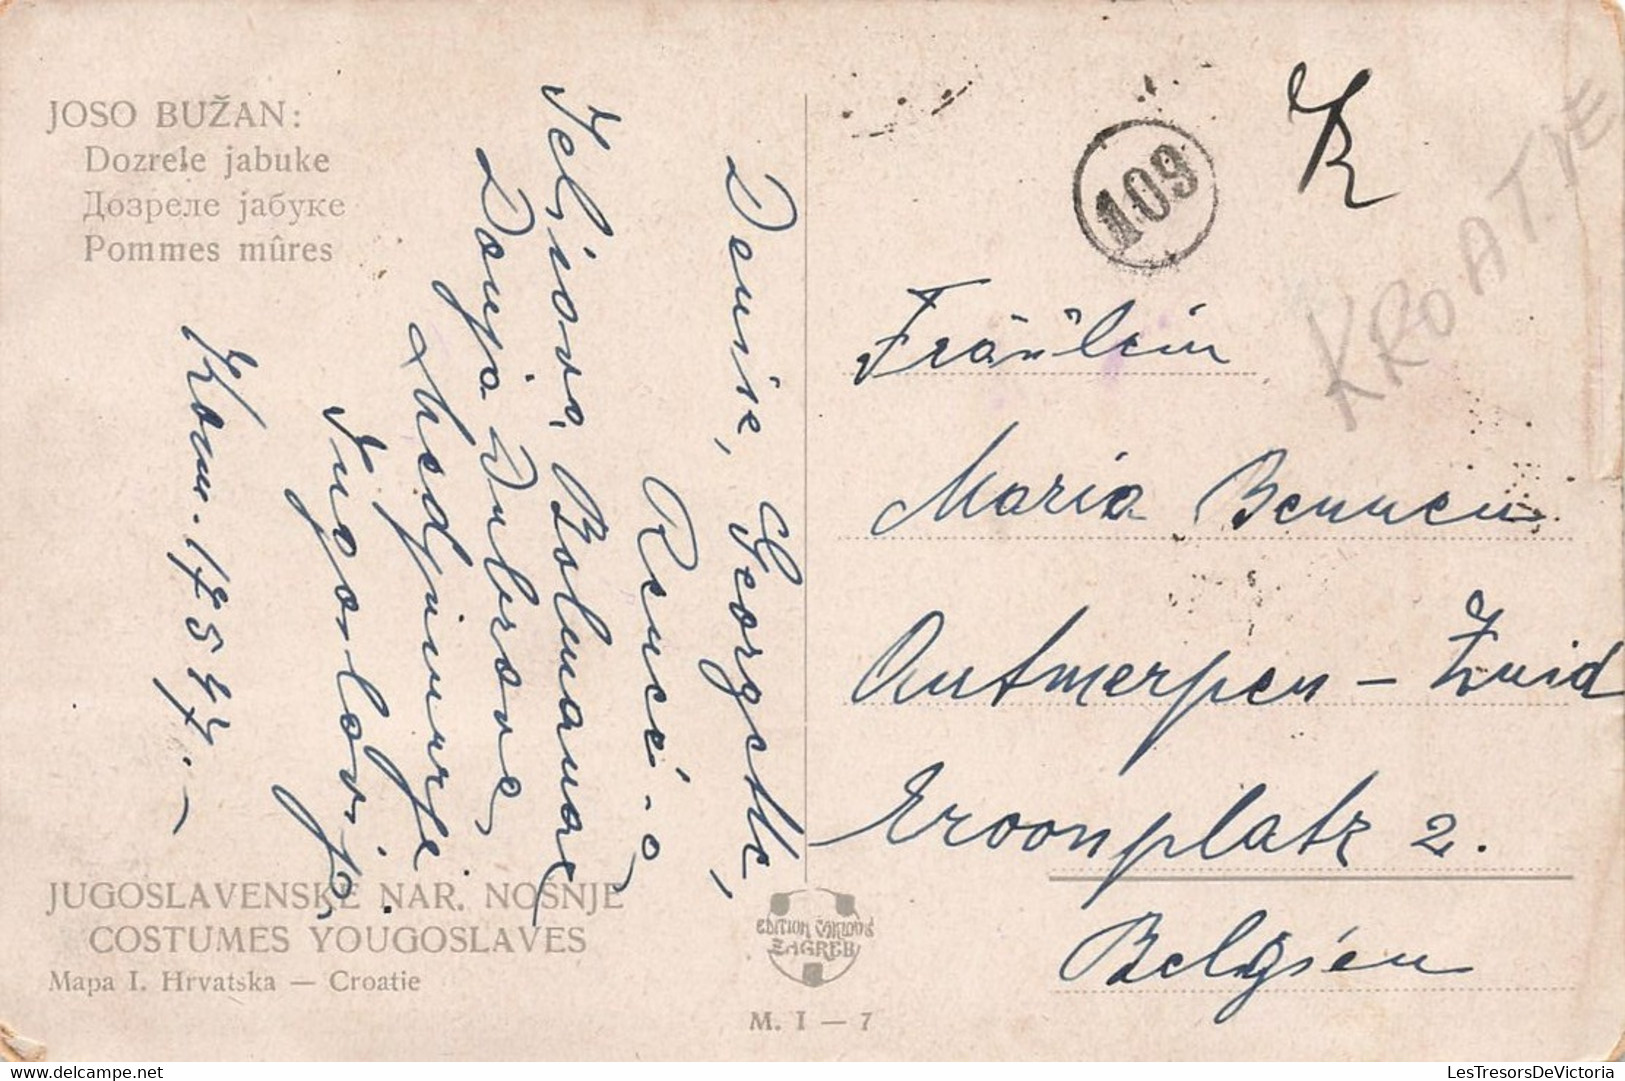 JOSO BUŽAN:
Dozrele jabuke
Дозреле јабуке
Pommes mûres
Denise, Georgette,
Reneé - a
Jeljiova Bolmanac
Donja Dubrava
Medjimurje
Jugoslavija.
Kom. 17 5 47. -
JUGOSLAVENSKE NAR. NOŠNJE
COSTUMES YOUGOSLAVES
Mapa I. Hrvatska — Croatie
EDITION ČAKLOVIĆ
ZAGREB
M. I — 7
109
KROATIE
Fräulein
Maria Bennen
Antwerpen - Zuid
Kroonplatz 2.
Belgien
LesTresorsDeVictoria
delcampe.net